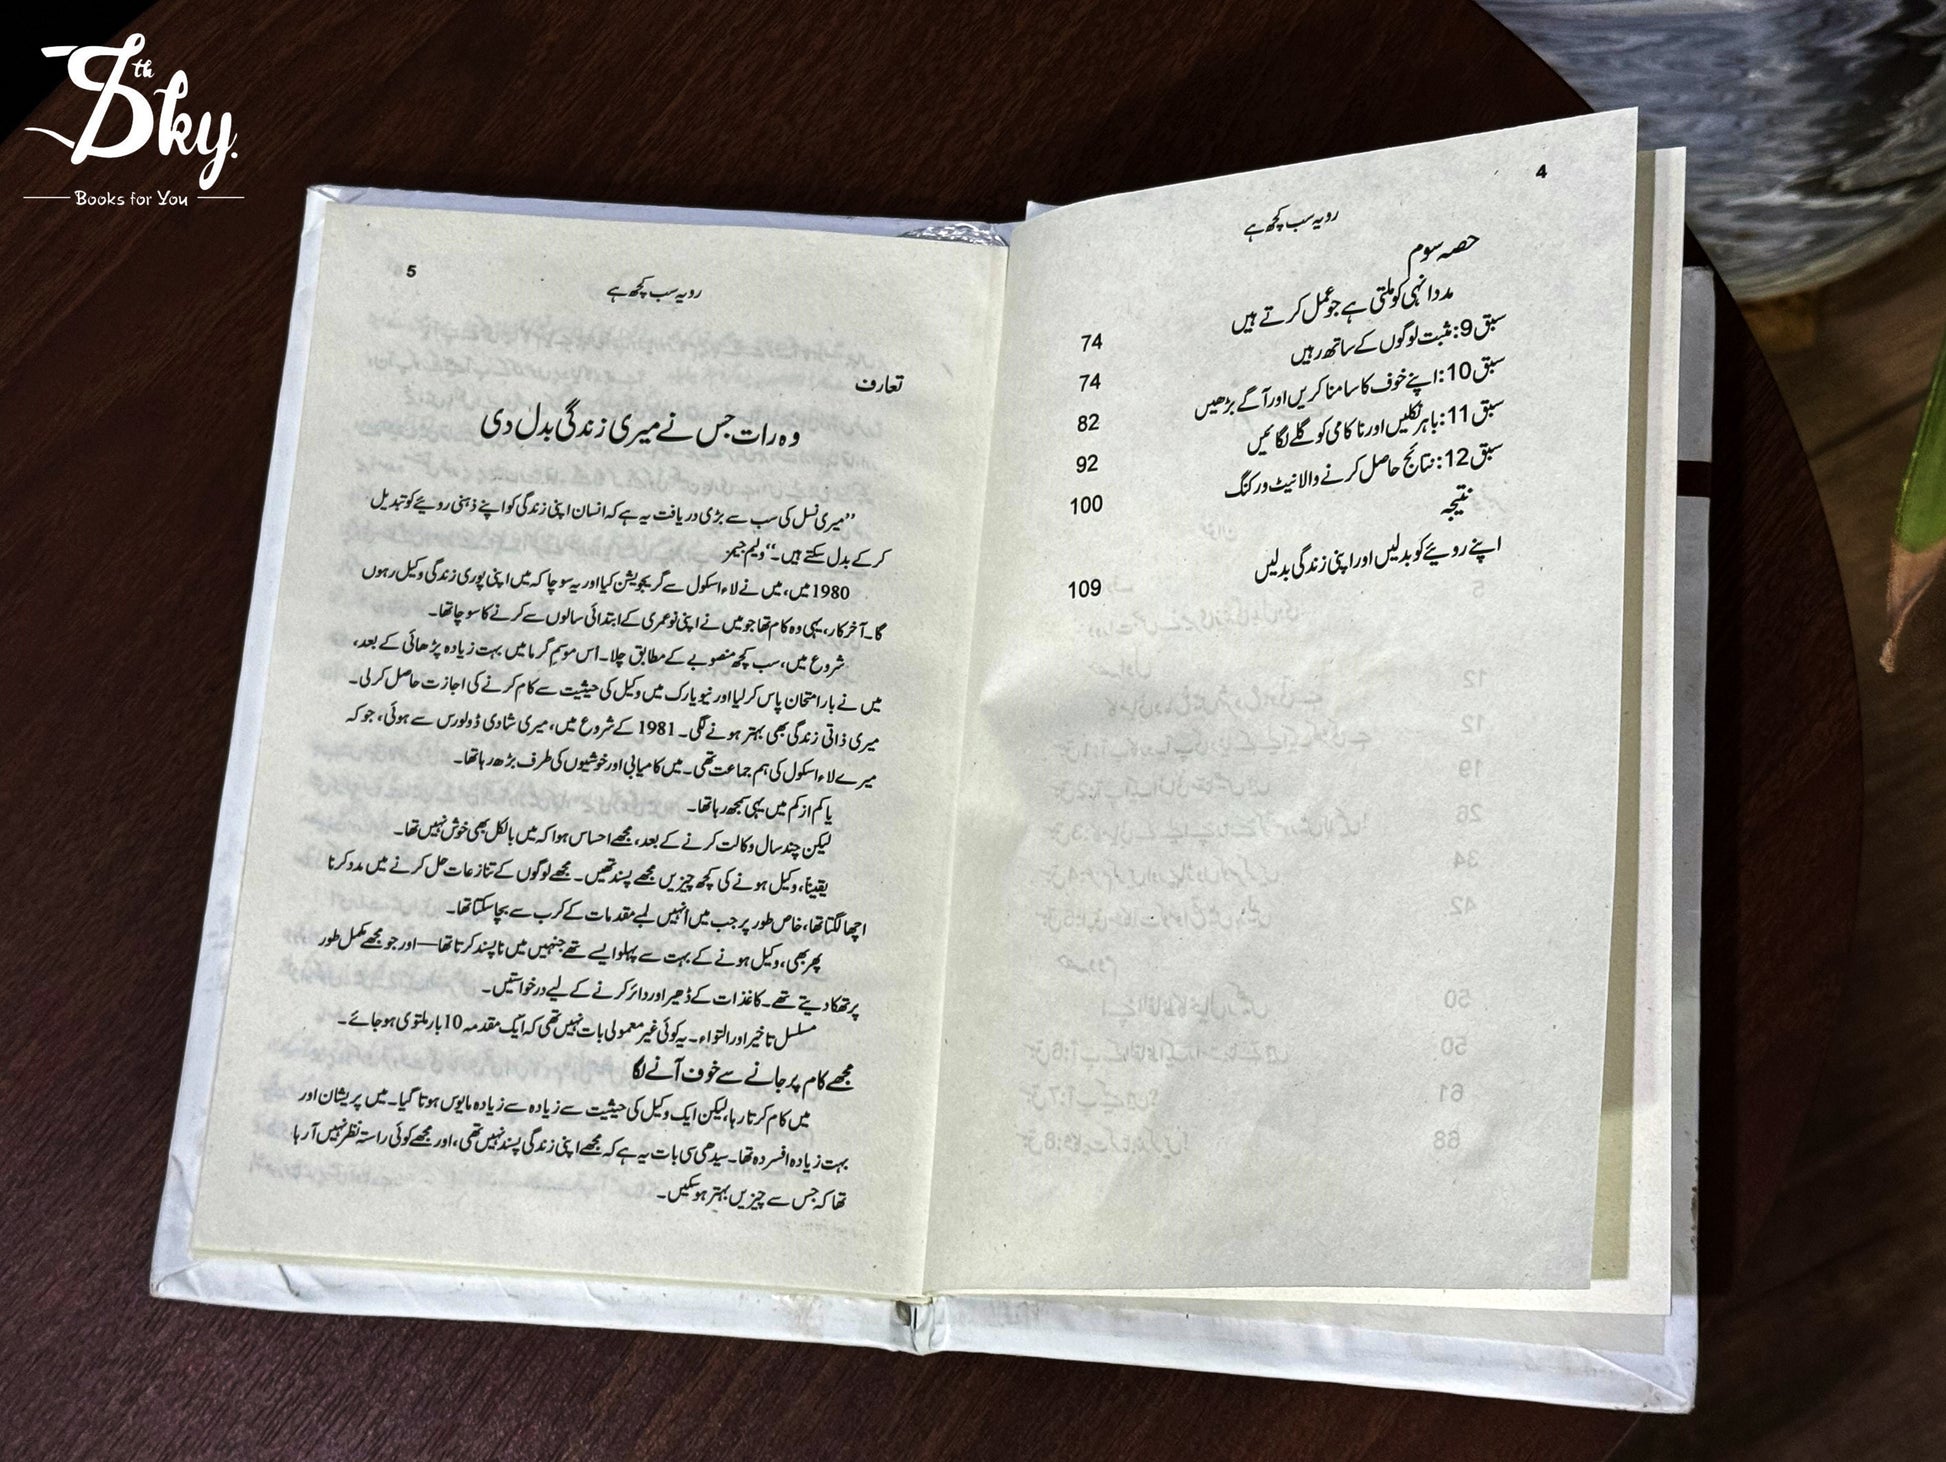 5th Sky.
Books for You
4
رویہ سب کچھ ہے
حصہ سوم
مدد انہی کو ملتی ہے جو عمل کرتے ہیں 74
سبق 9: مثبت لوگوں کے ساتھ رہیں 74
سبق 10: اپنے خوف کا سامنا کریں اور آگے بڑھیں 82
سبق 11: باہر نکلیں اور ناکامی کو گلے لگائیں 92
سبق 12: نتائج حاصل کرنے والا نیٹ ورکنگ 100
نتیجہ
اپنے رویئے کو بدلیں اور اپنی زندگی بدلیں 109
5
رویہ سب کچھ ہے
تعارف
وہ رات جس نے میری زندگی بدل دی
”میری نسل کی سب سے بڑی دریافت یہ ہے کہ انسان اپنی زندگی کو اپنے ذہنی رویئے کو تبدیل
کر کے بدل سکتے ہیں۔“ ولیم جیمز
1980 میں، میں نے لاء اسکول سے گریجویشن کیا اور یہ سوچا کہ میں اپنی پوری زندگی وکیل رہوں
گا۔ آخر کار، یہی وہ کام تھا جو میں نے اپنی نوعمری کے ابتدائی سالوں سے کرنے کا سوچا تھا۔
شروع میں، سب کچھ منصوبے کے مطابق چلا۔ اس موسم گرما میں بہت زیادہ پڑھائی کے بعد،
میں نے بار امتحان پاس کر لیا اور نیویارک میں وکیل کی حیثیت سے کام کرنے کی اجازت حاصل کر لی۔
میری ذاتی زندگی بھی بہتر ہونے لگی۔ 1981 کے شروع میں، میری شادی ڈولورس سے ہوئی، جو کہ
میرے لاء اسکول کی ہم جماعت تھی۔ میں کامیابی اور خوشیوں کی طرف بڑھ رہا تھا۔
یا کم از کم میں یہی سمجھ رہا تھا۔
لیکن چند سال وکالت کرنے کے بعد، مجھے احساس ہوا کہ میں بالکل بھی خوش نہیں تھا۔
یقیناً، وکیل ہونے کی کچھ چیزیں مجھے پسند تھیں۔ مجھے لوگوں کے تنازعات حل کرنے میں مدد کرنا
اچھا لگتا تھا، خاص طور پر جب میں انہیں لمبے مقدمات کے کرب سے بچا سکتا تھا۔
پھر بھی، وکیل ہونے کے بہت سے پہلو ایسے تھے جنہیں میں ناپسند کرتا تھا—اور جو مجھے مکمل طور
پر تھکا دیتے تھے۔ کاغذات کے ڈھیر اور دائر کرنے کے لیے درخواستیں۔
مسلسل تاخیر اور التواء۔ یہ کوئی غیر معمولی بات نہیں تھی کہ ایک مقدمہ 10 بار ملتوی ہو جائے۔
مجھے کام پر جانے سے خوف آنے لگا
میں کام کرتا رہا، لیکن ایک وکیل کی حیثیت سے زیادہ سے زیادہ مایوس ہوتا گیا۔ میں پریشان اور
بہت زیادہ افسردہ تھا۔ سیدھی سی بات یہ ہے کہ مجھے اپنی زندگی پسند نہیں تھی، اور مجھے کوئی راستہ نظر نہیں آ رہا
تھا کہ جس سے چیزیں بہتر ہو سکیں۔